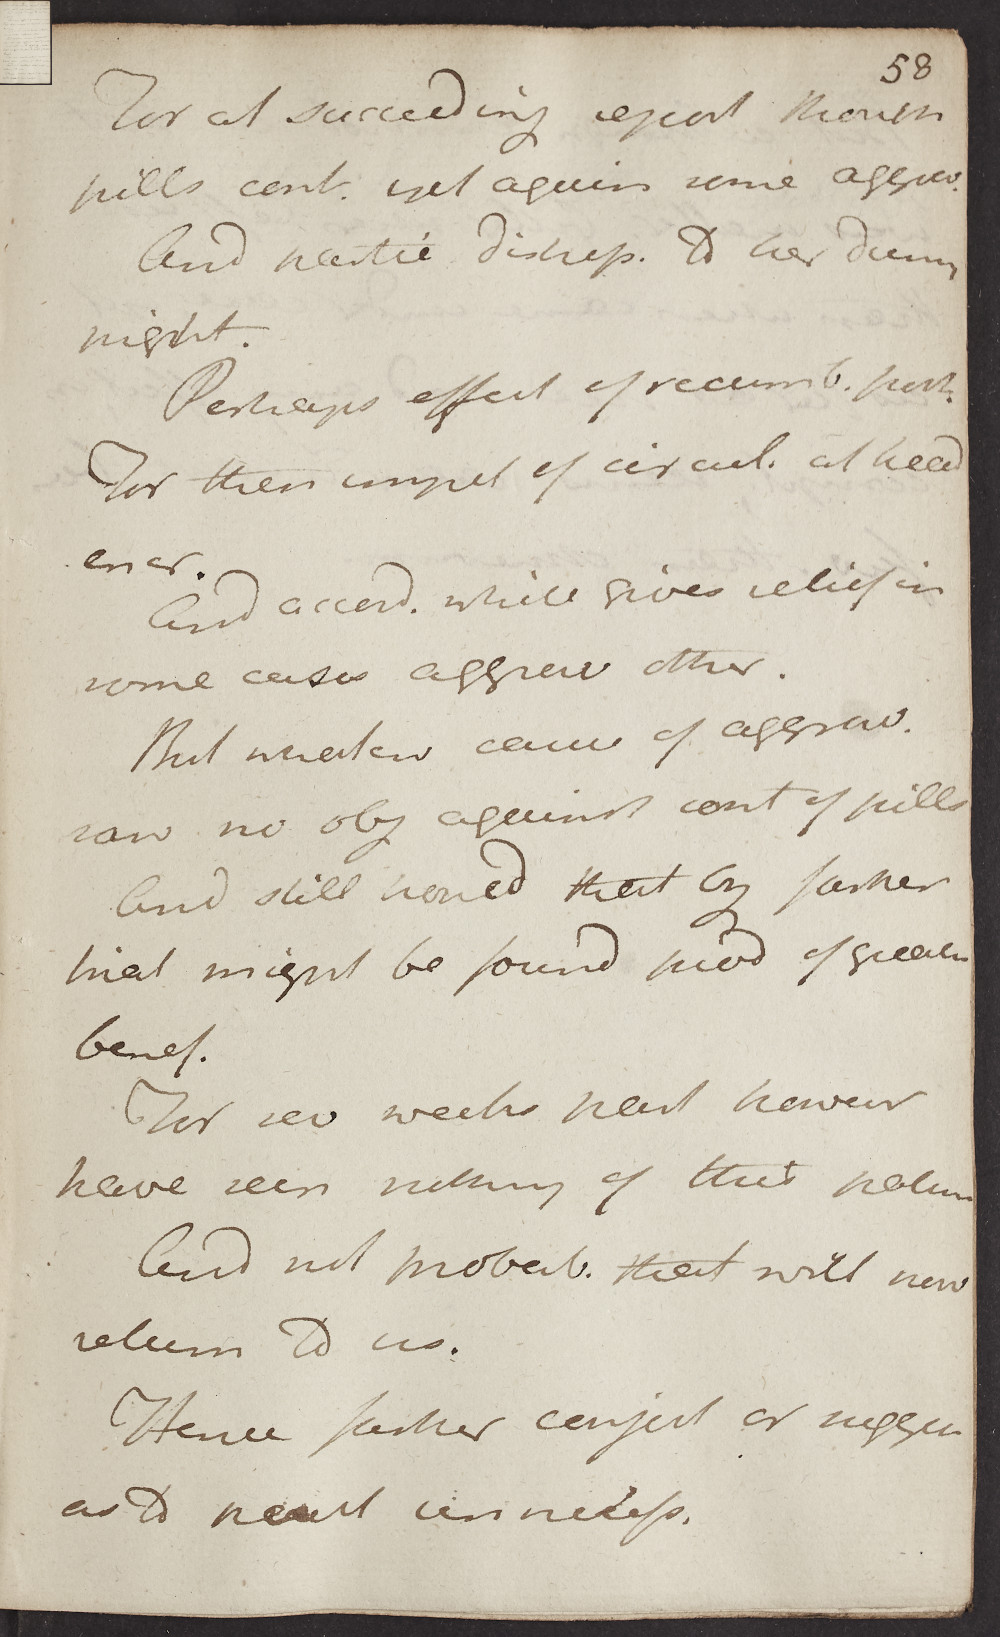 58
For at succeeding report though
pills cont. yet again some aggrav.
And partic distress. to her during
night.
Perhaps effect of recumb. post.
For then impet of circul. at head
encr.
And accord. while gives relief in
some cases aggrav other.
But whatev cause of aggrav.
saw no obj against cont of pills
And still hoped that by farther
trial might be found prod of greater
benef.
For sev weeks past however
have seen nothing of this patient
And not probab. that will now
return to us.
Hence farther conject or suggest
as to treat unnecess.